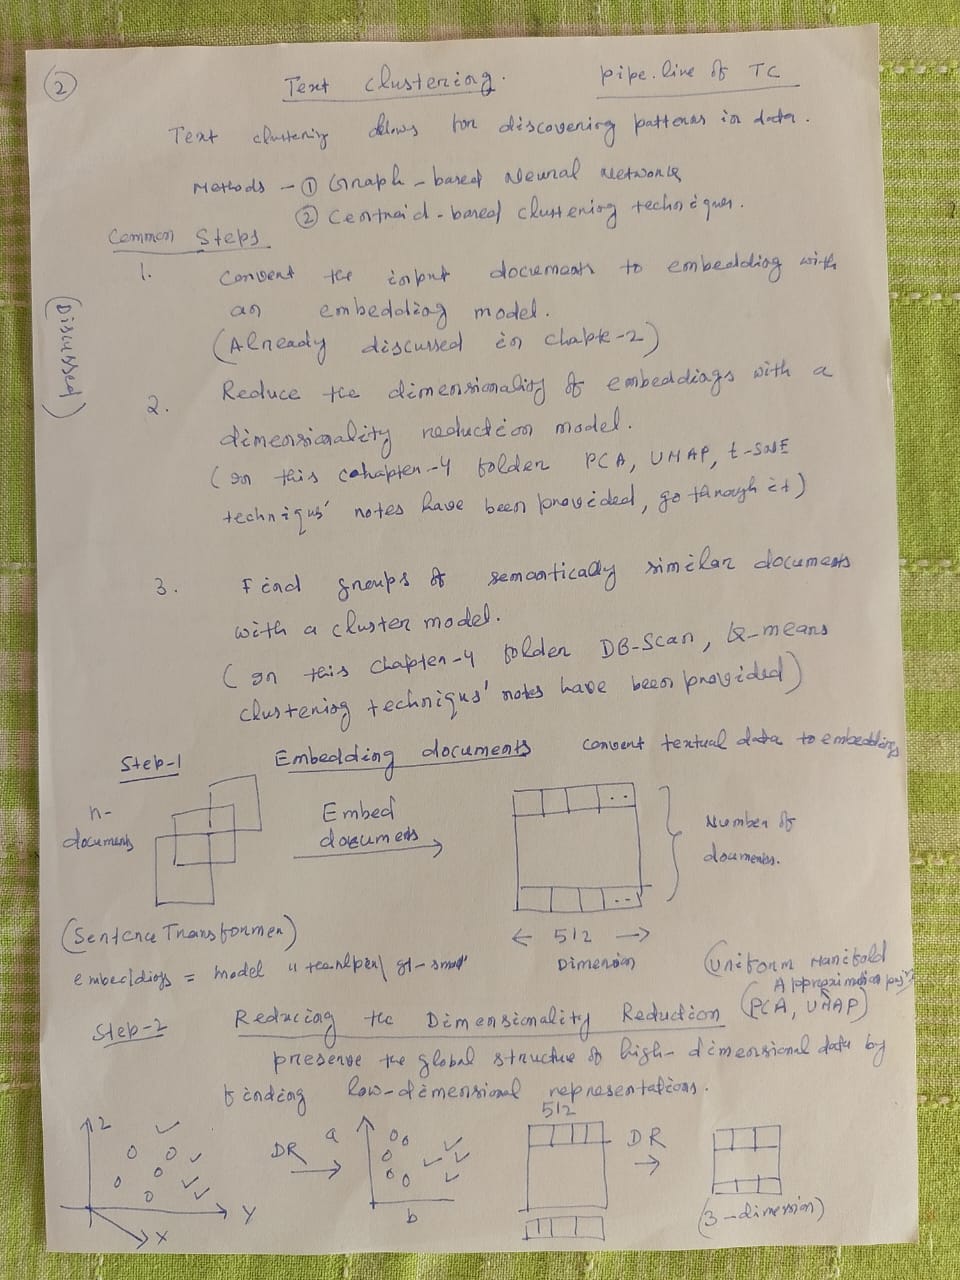 2
Text clustering. pipe.line of TC
Text clustering allows for discovering patterns in data.
Methods - ① Graph-based Neural Networks
② Centroid-based clustering techniques.
Common Steps
(Discussed)
1. Convert the input documents to embedding with
an embedding model.
(Already discussed in chapte-2)
2. Reduce the dimensionality of embeddings with a
dimensionality reduction model.
(In this cahapter-4 folder PCA, UMAP, t-SNE
techniqus' notes have been provided, go through it)
3. Find groups of semantically similar documents
with a cluster model.
(In this Chapter-4 folder DB-Scan, K-means
clustering techniqus' notes have been provided)
Step-1 Embedding documents convert textual data to embeddings
n-
documents
Embed
documents
Number of
documents.
← 512 →
Dimension
(Sentence Transformer)
embeddings = model "
(Uniform Manifold
Approximation
Step-2 Reducing the Dimensionality Reduction (PCA, UMAP)
preserve the global structure of high-dimensional data by
finding low-dimensional representations.
Z
Y
X
DR
a
b
512
DR
(3-dimension)